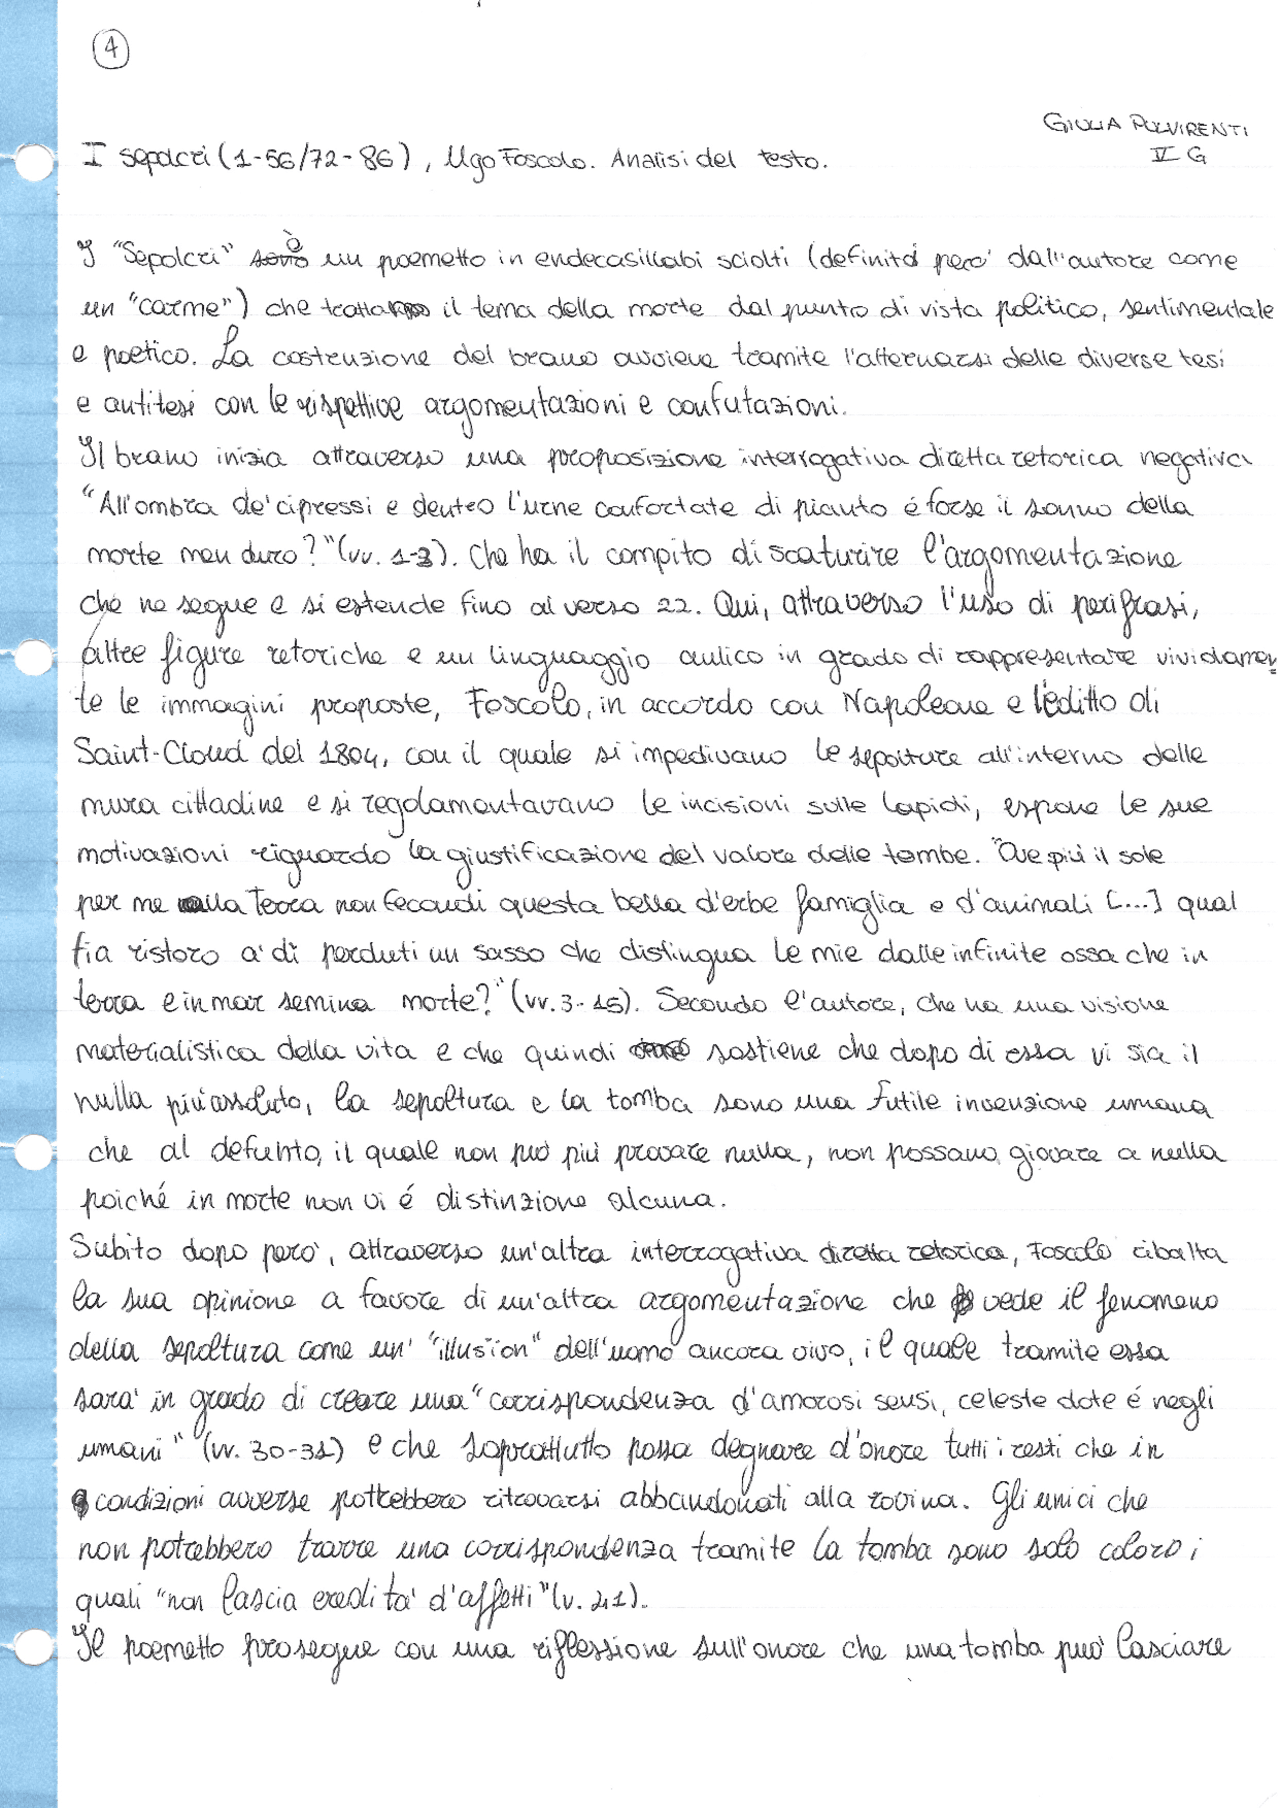 4
GIULIA PULVIRENTI
V G
I sepolcri (1-56/72-86), Ugo Foscolo. Analisi del testo.
I "Sepolcri" è un poemetto in endecasillabi sciolti (definito però dall'autore come
un "carme") che tratta il tema della morte dal punto di vista politico, sentimentale
e poetico. La costruzione del brano avviene tramite l'alternarsi delle diverse tesi
e antitesi con le rispettive argomentazioni e confutazioni.
Il brano inizia attraverso una proposizione interrogativa diretta retorica negativa
"All'ombra de' cipressi e dentro l'urne confortate di pianto é forse il sonno della
morte men duro?" (vv. 1-3). Che ha il compito di scaturire l'argomentazione
che ne segue e si estende fino al verso 22. Qui, attraverso l'uso di perifrasi,
altre figure retoriche e un linguaggio aulico in grado di rappresentare vividamen=
te le immagini proposte, Foscolo, in accordo con Napoleone e l'editto di
Saint-Cloud del 1804, con il quale si impedivano le sepolture all'interno delle
mura cittadine e si regolamentavano le incisioni sulle lapidi, espone le sue
motivazioni riguardo la giustificazione del valore delle tombe. "Ove più il sole
per me alla Terra non fecondi questa bella d'erbe famiglia e d'animali [...] qual
fia ristoro a' dì perduti un sasso che distingua le mie dalle infinite ossa che in
terra e in mar semina morte?" (vv. 3-15). Secondo l'autore, che ha una visione
materialistica della vita e che quindi sostiene che dopo di essa vi sia il
nulla più assoluto, la sepoltura e la tomba sono una futile invenzione umana
che al defunto, il quale non può più provare nulla, non possano giovare a nulla
poiché in morte non vi é distinzione alcuna.
Subito dopo però, attraverso un'altra interrogativa diretta retorica, Foscolo ribalta
la sua opinione a favore di un'altra argomentazione che vede il fenomeno
della sepoltura come un' "illusion" dell'uomo ancora vivo, il quale tramite essa
sarà in grado di creare una "corrispondenza d'amorosi sensi, celeste dote é negli
umani" (vv. 30-31) e che soprattutto possa degnare d'onore tutti i resti che in
condizioni avverse potrebbero ritrovarsi abbandonati alla rovina. Gli unici che
non potrebbero trarre una corrispondenza tramite la tomba sono solo coloro i
quali "non lascia eredità d'affetti" (v. 41).
Il poemetto prosegue con una riflessione sull'onore che una tomba può lasciare